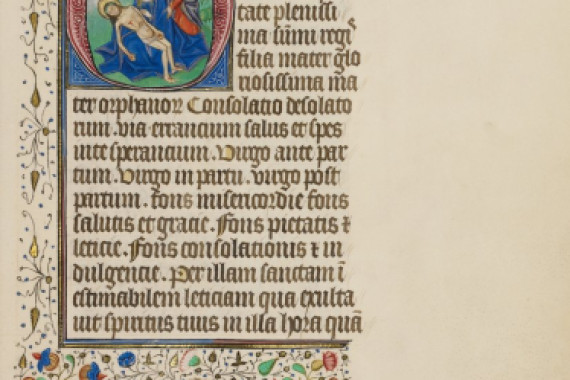 tate plenissi
ma sūmi regꝭ
filia mater glo
riosissima ma
ter orphanoꝝ Consolatio desolato
rum. via errancium salus et spes
in te sperancium. Virgo ante par
tum. Virgo in partu. virgo post
partum. fons misericordie fons
salutis et gracie. Fons pietatis ⁊
leticie. Fons consolationis ⁊ in
dulgencie. Per illam sanctam ī
estimabilem leticiam qua exulta
uit spiritus tuus in illa hora quā